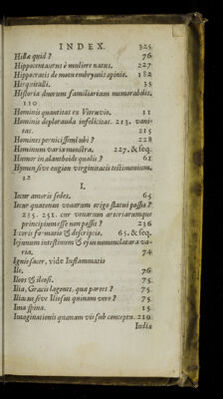 INDEX. 325
Hillæ quid? 76
Hippocentaurus è muliere natus. 227
Hippocratis de motu embryonis opinio. 182
Hirquitalli. 35
Historia duarum familiarium memorabiles,
110
Hominis quantitas ex Vitruvio. 11
Hominis deploranda infelicitas. 213. vani-
tas. 215
Homines perniciosissimi ubi? 228
Hominum varia monstra. 227. & seq.
Humor in alantboide qualis? 61
Hymen sive eugion virginitatis testimonium.
12
I.
Iecur amoris sedes. 65
Iecur quatenus venarum origo statui possit?
235. 251. cur venarum arteriarumque
principium esse non possit? 236
Iecoris forma & descriptio. 65. & seq.
Iejunum intestinum & ejus nomenclatura va-
ria. 74
Ignis sacer, vide Inflammatio
Ile. 76
Ileos & ileosi. 75.
Ilia, Græcis lagones, quæ partes? 75.
Iliacus sive Iliosus quinam vero? 75
Ima spina. 15
Imaginationis quænam vis sub conceptu. 219.
Indiæ